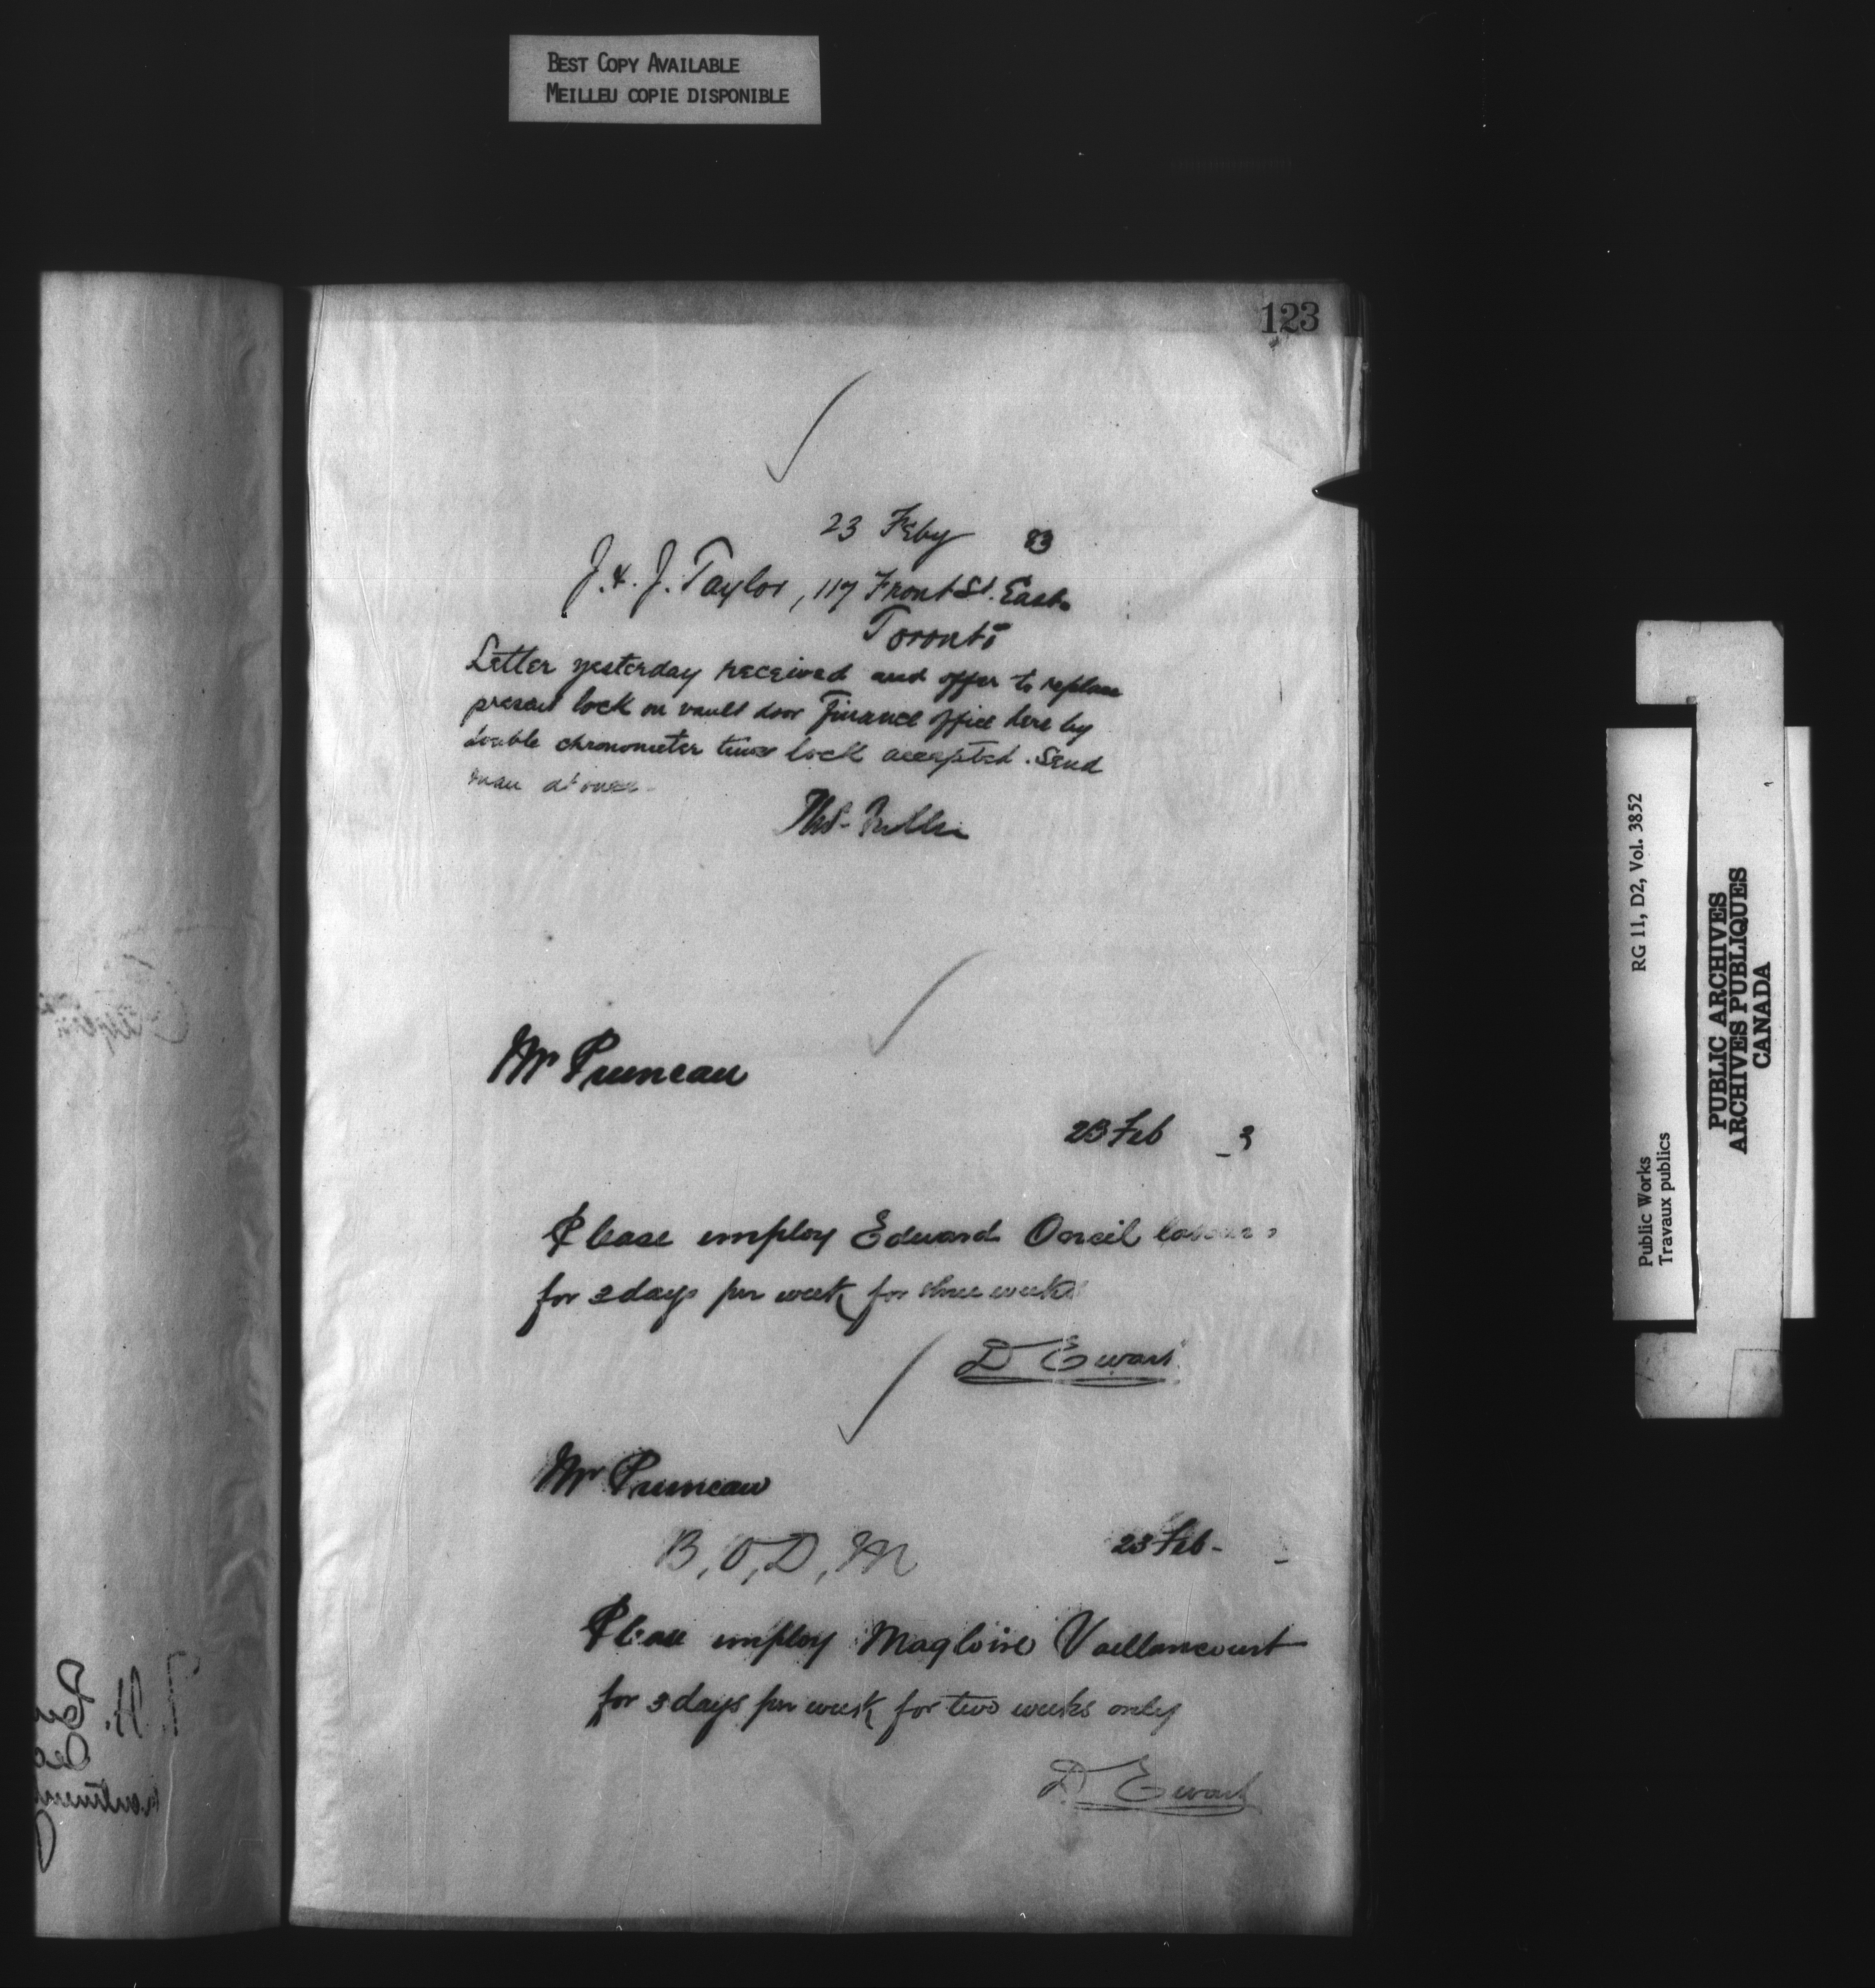 BEST COPY AVAILABLE
MEILLEU COPIE DISPONIBLE
123
23 Feby 83
J. & J. Taylor, 117 Front St. East.
Toronto
Letter yesterday received and offer to replace
present lock on vault door Finance office here by
double chronometer time lock accepted. Send
man at once.
Thos. Fuller
Mr Pruneau
23 Feb _ 3
Please employ Edward Oneil
for 3 days per week for three weeks
D Ewart
Mr Pruneau
B, O, D, M
23 Feb -
Please employ Magloire Vaillancourt
for 3 days per week for two weeks only
D. Ewart
Public Works
Travaux publics
RG 11, D2, Vol. 3852
PUBLIC ARCHIVES
ARCHIVES PUBLIQUES
CANADA